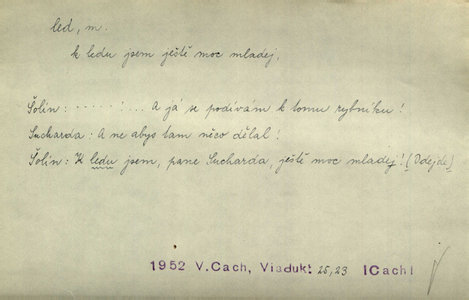 led, m.
k ledu jsem ještě moc mladej.
Šolín: ······!... A já se podívám k tomu rybníku!
Sucharda: A ne abys tam něco dělal!
Šolín: K ledu jsem, pane Sucharda, ještě moc mladej! (Odejde)
1952 V.Cach, Viadukt 25,23 |Cach|